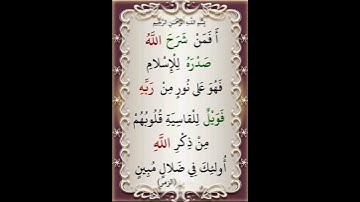 بِسْمِ اللَّهِ الرَّحْمَنِ الرَّحِيمِ
أَ فَمَنْ شَرَحَ اللَّهُ
صَدْرَهُ لِلْإِسْلَامِ
فَهُوَ عَلَى نُورٍ مِنْ رَبِّهِ
فَوَيْلٌ لِلْقَاسِيَةِ قُلُوبُهُمْ
مِنْ ذِكْرِ اللَّهِ
أُولَئِكَ فِي ضَلَالٍ مُبِينٍ
(الزمر)